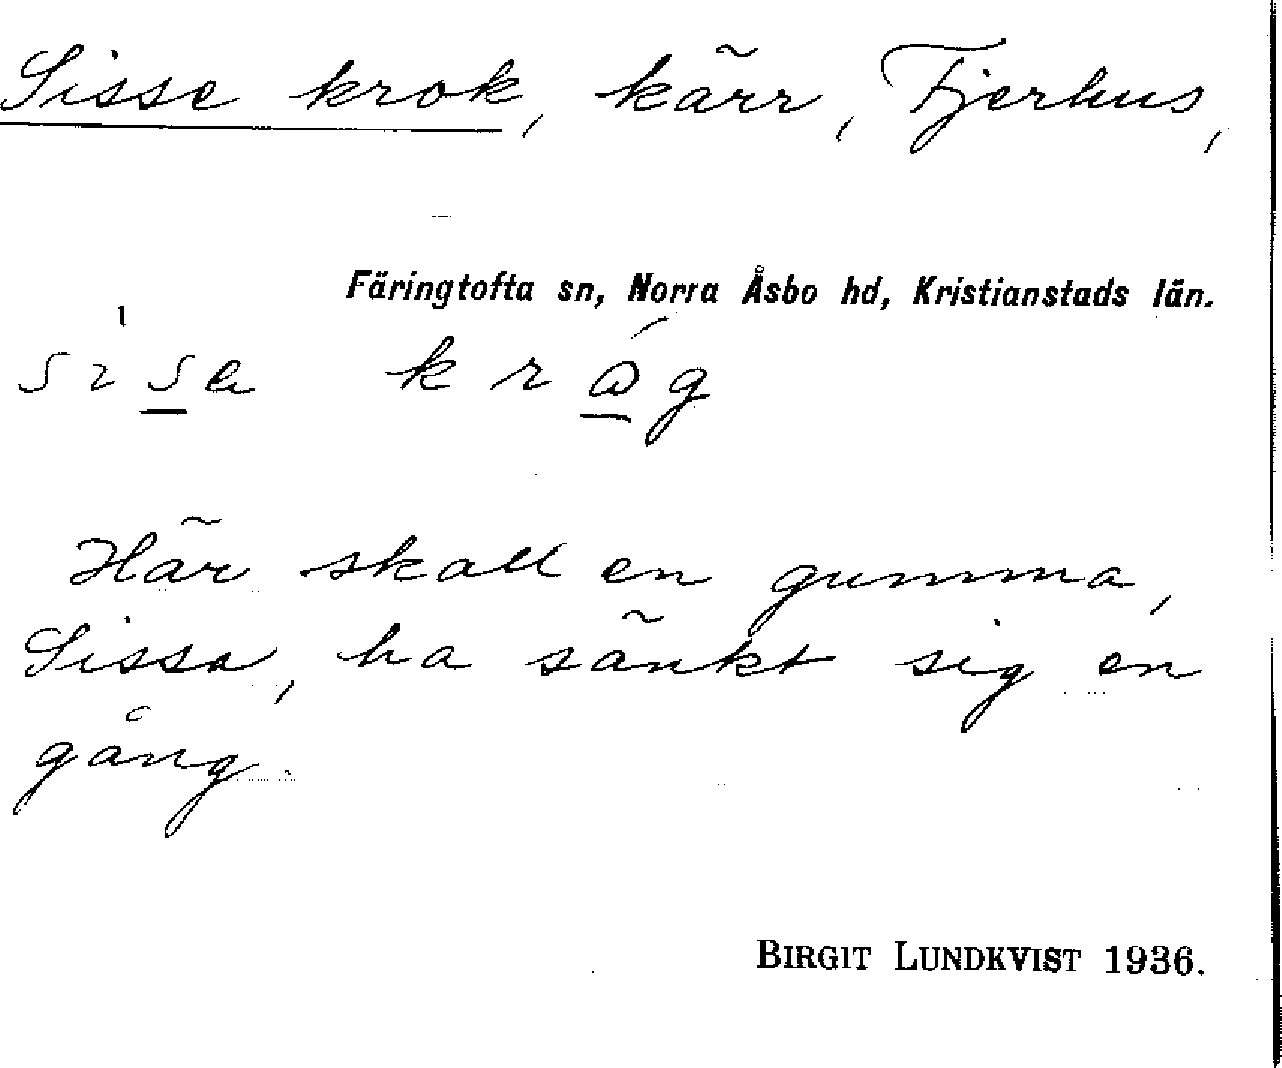 Sisse krok, kärr, Fjerhus,
Färingtofta sn, Norra Åsbo hd, Kristianstads län.
Här skall en gumma,
Sissa, ha sänkt sig en
gång.
BIRGIT LUNDKVIST 1936.